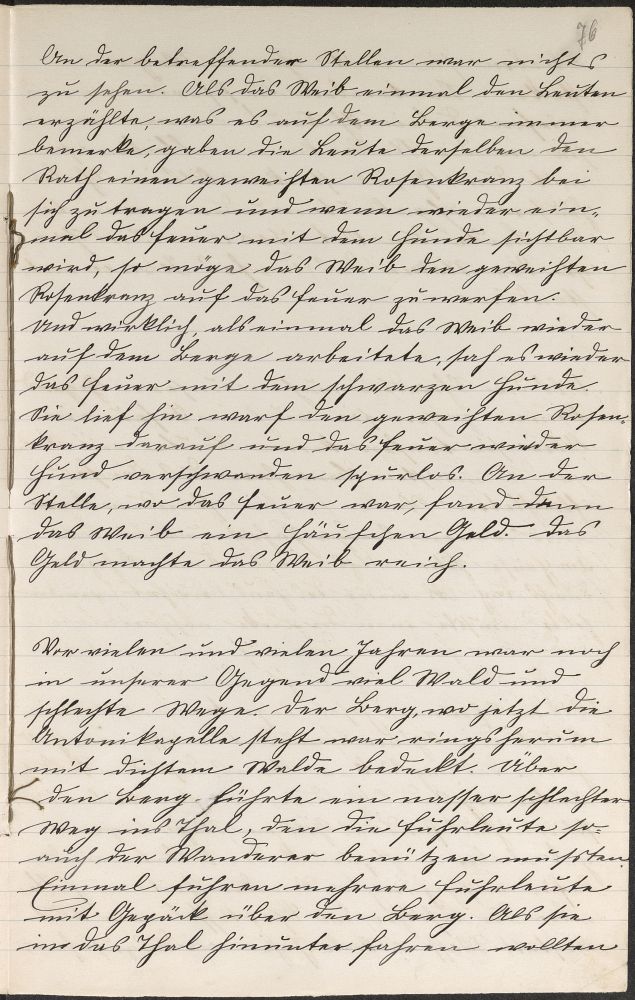 76
An der betreffender Stellen war nichts
zu sehen. Als das Weib einmal den Leuten
erzählte, was es auf dem Berge immer
bemerke, gaben die Leute derselben den
Rath einen geweihten Rosenkranz bei
sich zu tragen und wenn wieder ein-
mal das Feuer mit dem Hunde sichtbar
wird, so möge das Weib den geweihten
Rosenkranz auf das Feuer zu werfen.
Und wirklich, als einmal das Weib wieder
auf dem Berge arbeitete, sah es wieder
das Feuer mit dem schwarzen Hunde.
Sie lief hin warf den geweihten Rosen-
kranz darauf und das Feuer wieder
Hund verschwanden spurlos. An der
Stelle, wo das Feuer war, fand dann
das Weib ein Häufchen Geld. Das
Geld machte das Weib reich.
Vor vielen und vielen Jahren war noch
in unserer Gegend viel Wald und
schlechte Wege. Der Berg, wo jetzt die
Antonikapelle steht war ringsherum
mit dichtem Walde bedeckt. Über
den Berg führte ein nasser schlechter
Weg ins Thal, den die Fuhrleute so-
auch der Wanderer benützen mussten.
Einmal fuhren mehrere Fuhrleute
mit Gepäck über den Berg. Als sie
in das Thal hinunter fahren wollten